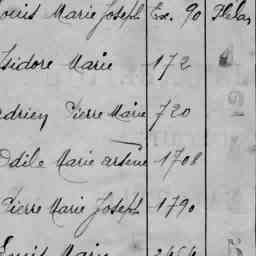 ouis Marie Joseph Ex. 90
Isidore Marie 172
Adrien Pierre Marie 720
Odile Marie arsène 1708
Pierre Marie Joseph 1790
Marie